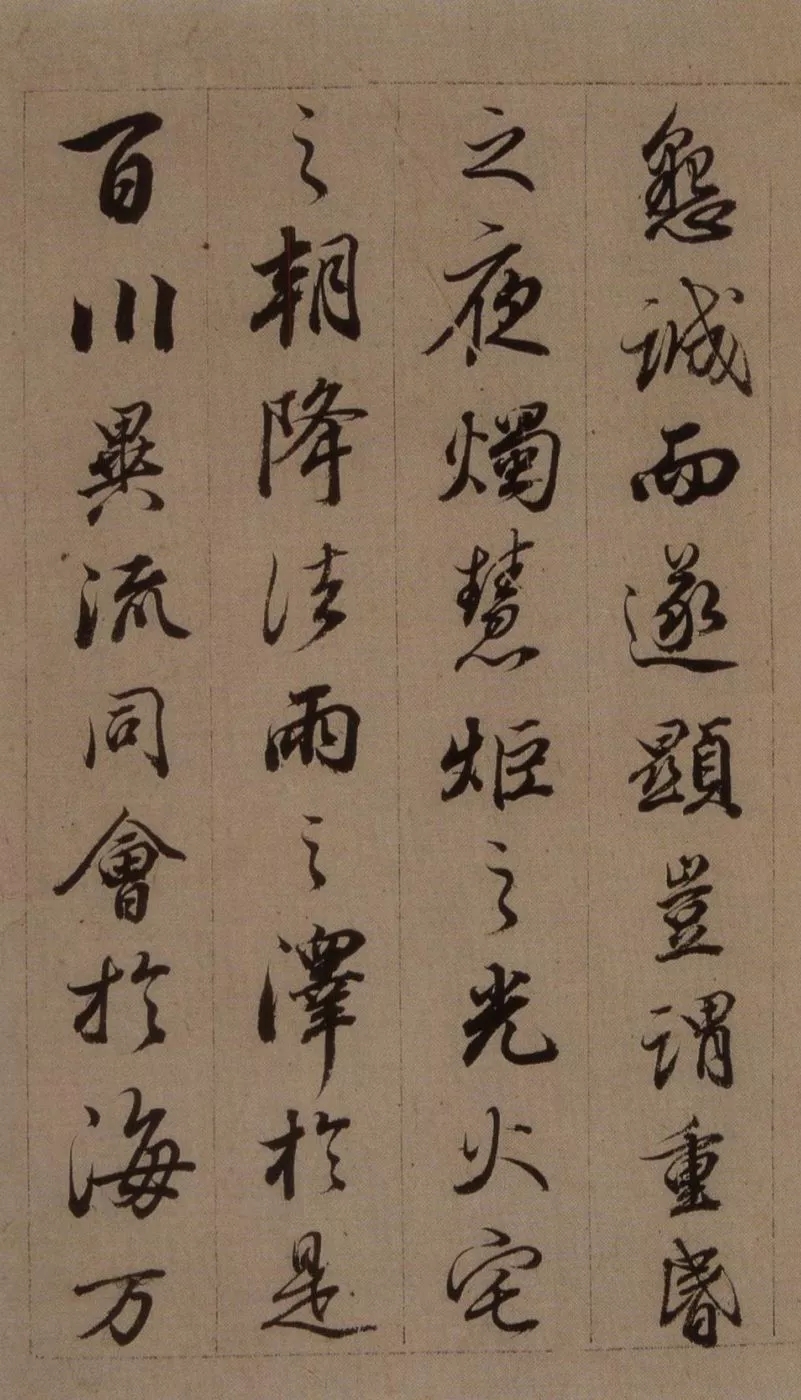 懇誠而遂顯豈謂重昬
之夜燭慧炬之光火宅
之朝降法雨之澤於是
百川異流同會於海万